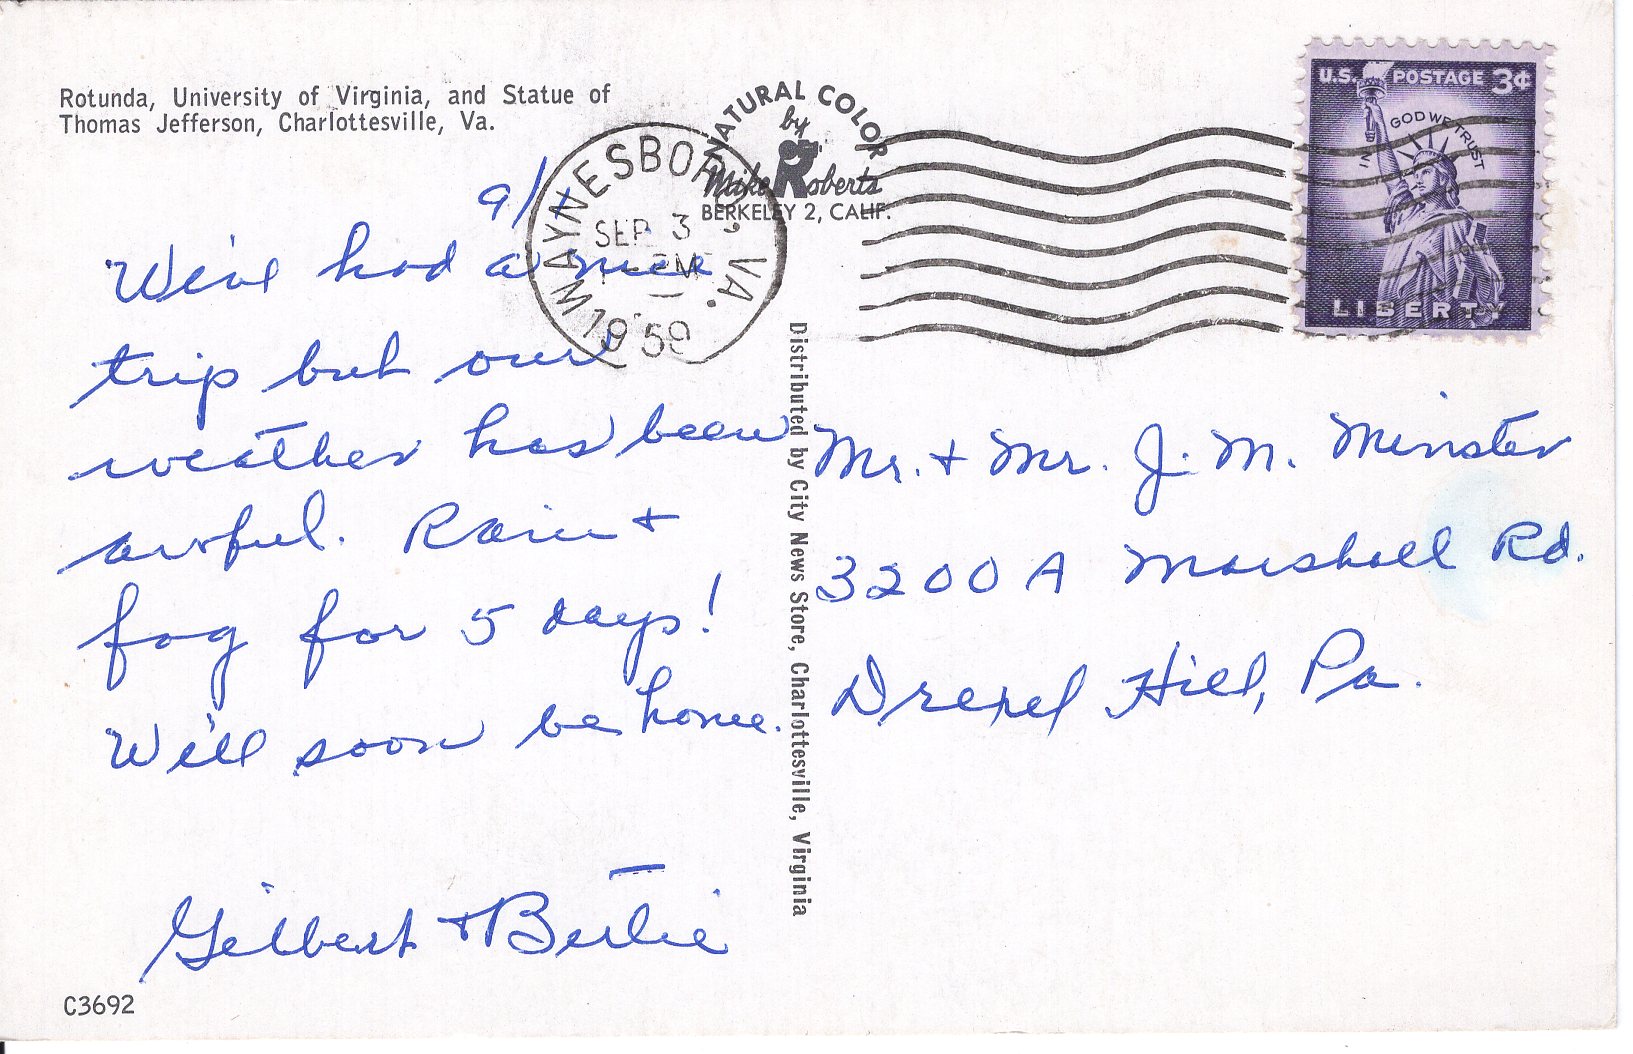 Rotunda, University of Virginia, and Statue of
Thomas Jefferson, Charlottesville, Va.
NATURAL COLOR
by
Mike Roberts
BERKELEY 2, CALIF.
WAYNESBORO, VA.
SEP 3
PM
1959
U.S. POSTAGE 3¢
IN GOD WE TRUST
LIBERTY
9/
We've had a nice
trip but our
weather has been
awful. Rain +
fog for 5 days!
We'll soon be home.
Gilbert + Bertie
Distributed by City News Store, Charlottesville, Virginia
Mr. + Mr. J. M. Minster
3200 A Marshall Rd.
Drexel Hill, Pa.
C3692